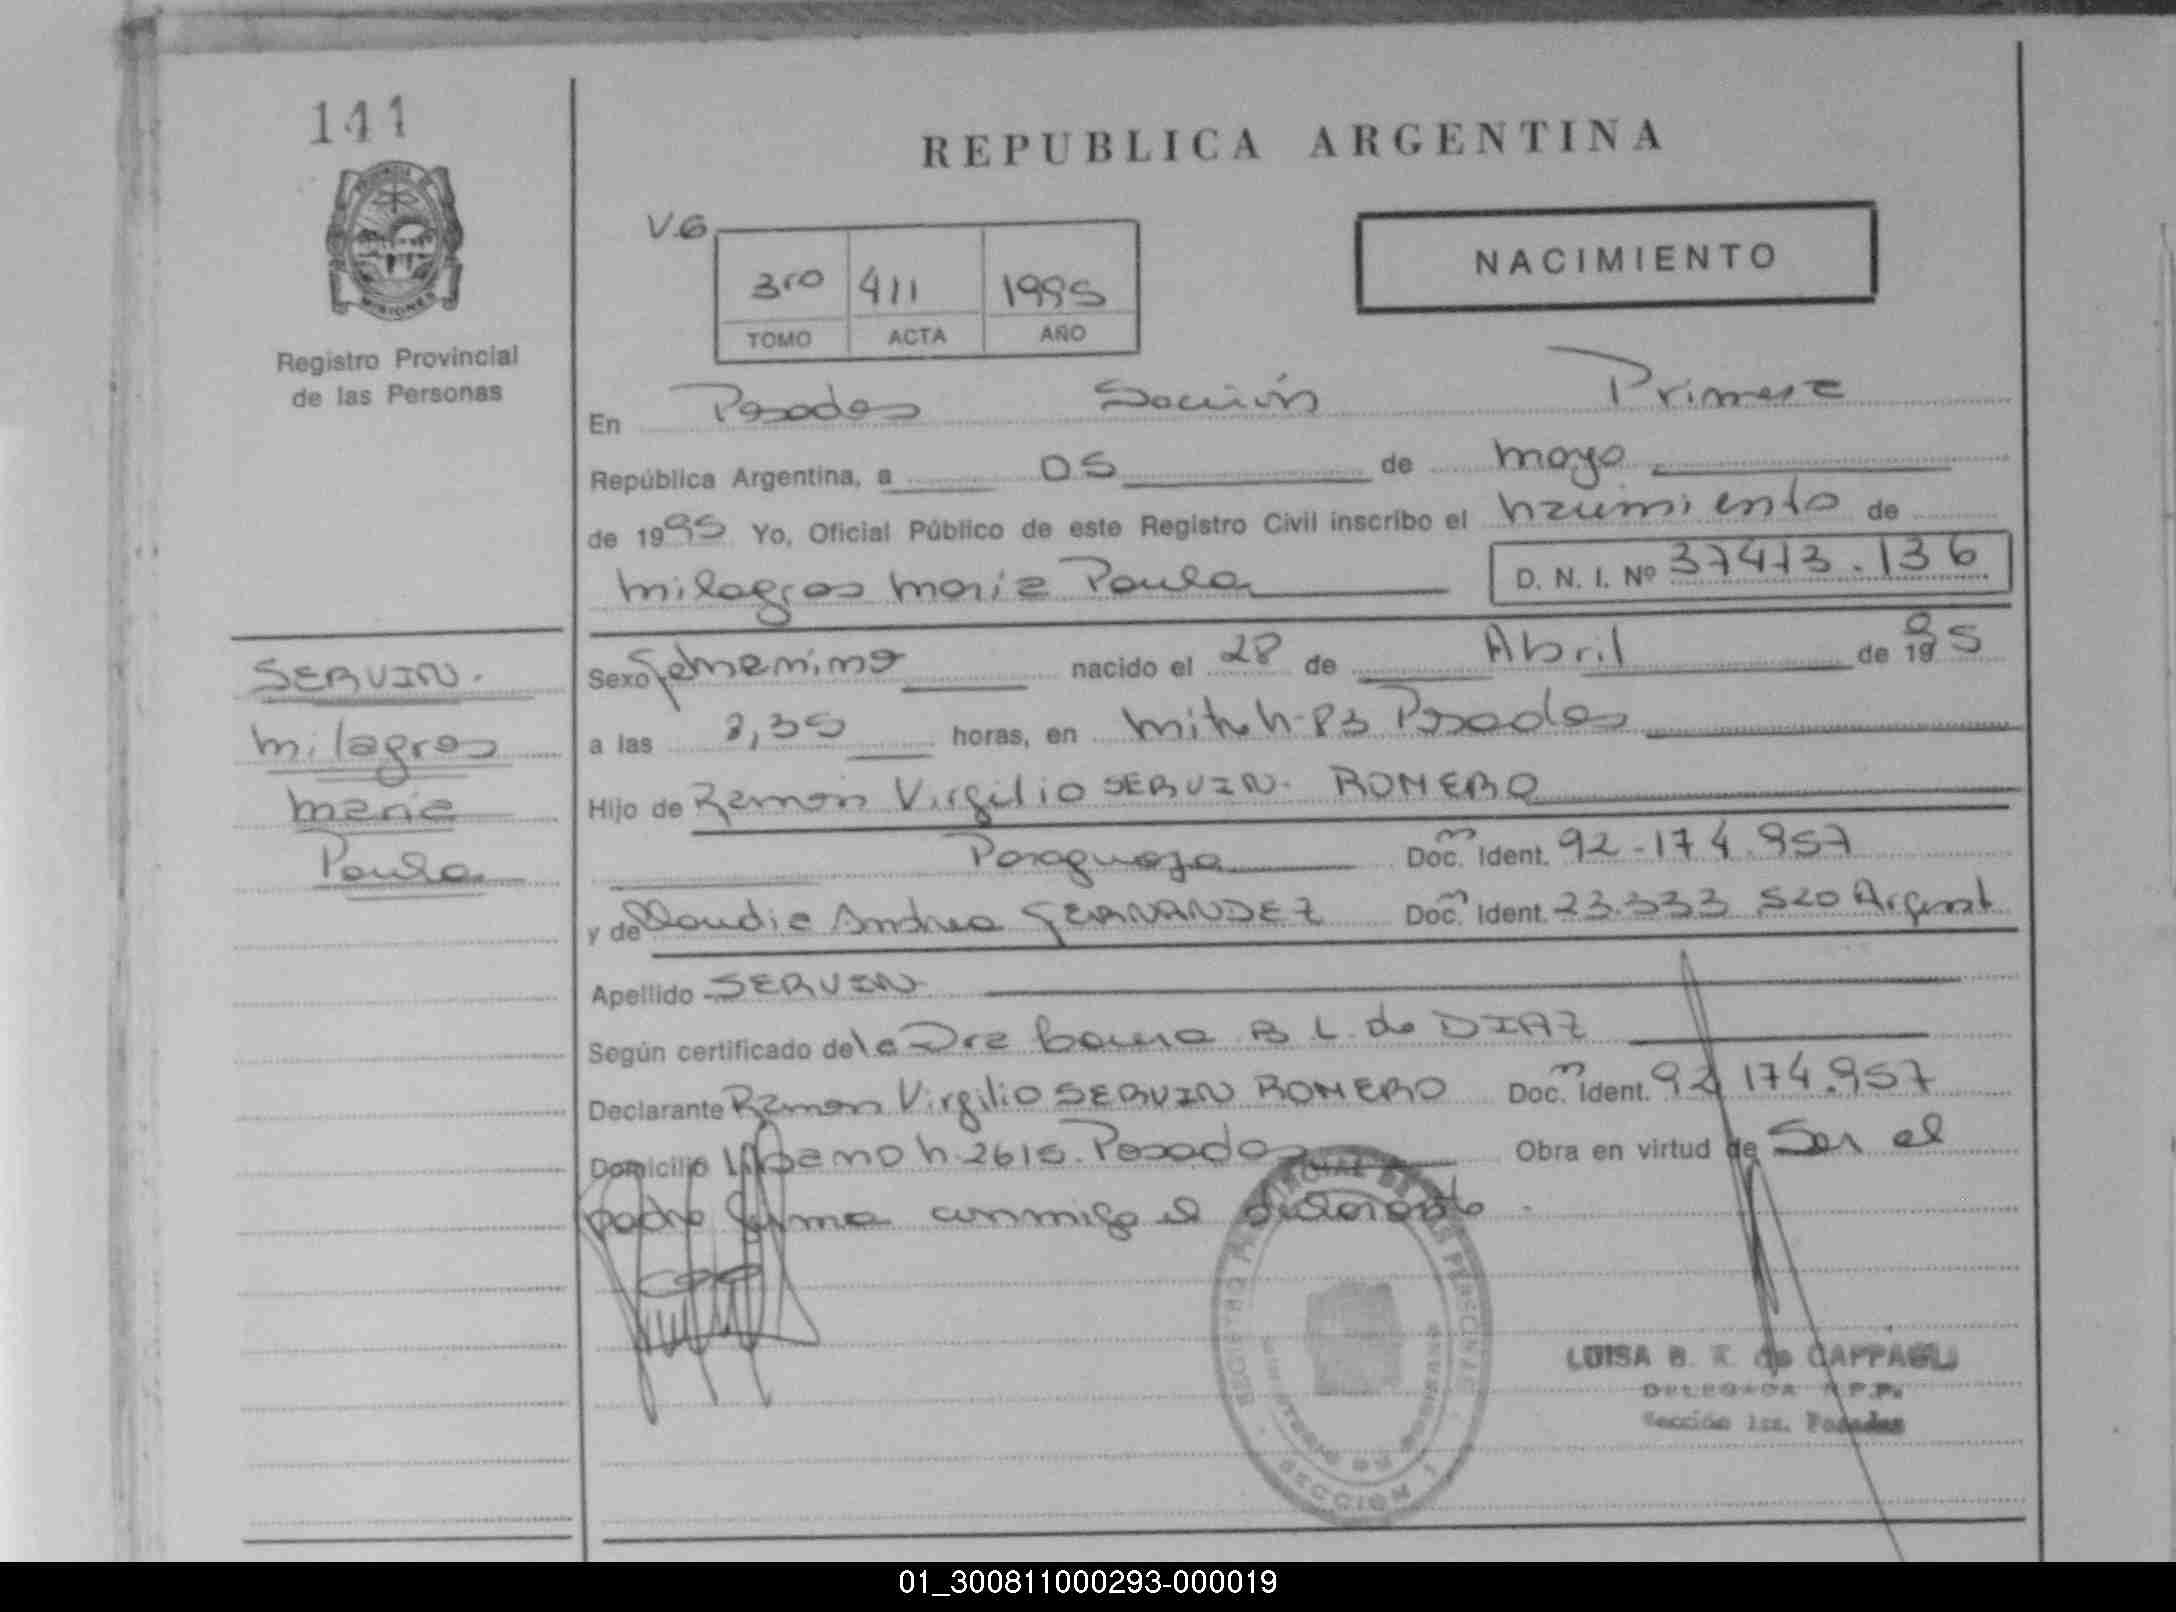 141
REPUBLICA ARGENTINA
V.G
NACIMIENTO
3ro 411 1995
TOMO ACTA AÑO
MISIONES
Registro Provincial
de las Personas
En Posadas Sección Primera
República Argentina, a 05 de mayo
de 1995 Yo, Oficial Público de este Registro Civil inscribo el nacimiento de
milagros maria Paula D. N. I. Nº 37413.136
SERVIN.
milagros
maria
Paula
Sexo femenino nacido el 28 de Abril de 1995
a las 8,35 horas, en h-83 Posadas
Hijo de Ramon Virgilio SERVIN. ROMERO
Paraguaya Doc. Ident. 92-174.957
y de Claudia Andrea FERNANDEZ Doc. Ident. 23.333 520 Argent
Apellido SERVIN
Según certificado de la Dra B L. de DIAZ
Declarante Ramon Virgilio SERVIN ROMERO Doc. Ident. 92 174.957
Domicilio h. 2615. Posadas Obra en virtud de Ser el
padre firma conmigo el declarante.
REGISTRO PROVINCIAL DE LAS PERSONAS
MINISTERIO DE GOBIERNO
SECCION 1
LUISA B. de CAPPAGLI
DELEGADA R.P.P.
Sección 1ra. Posadas
01_300811000293-000019